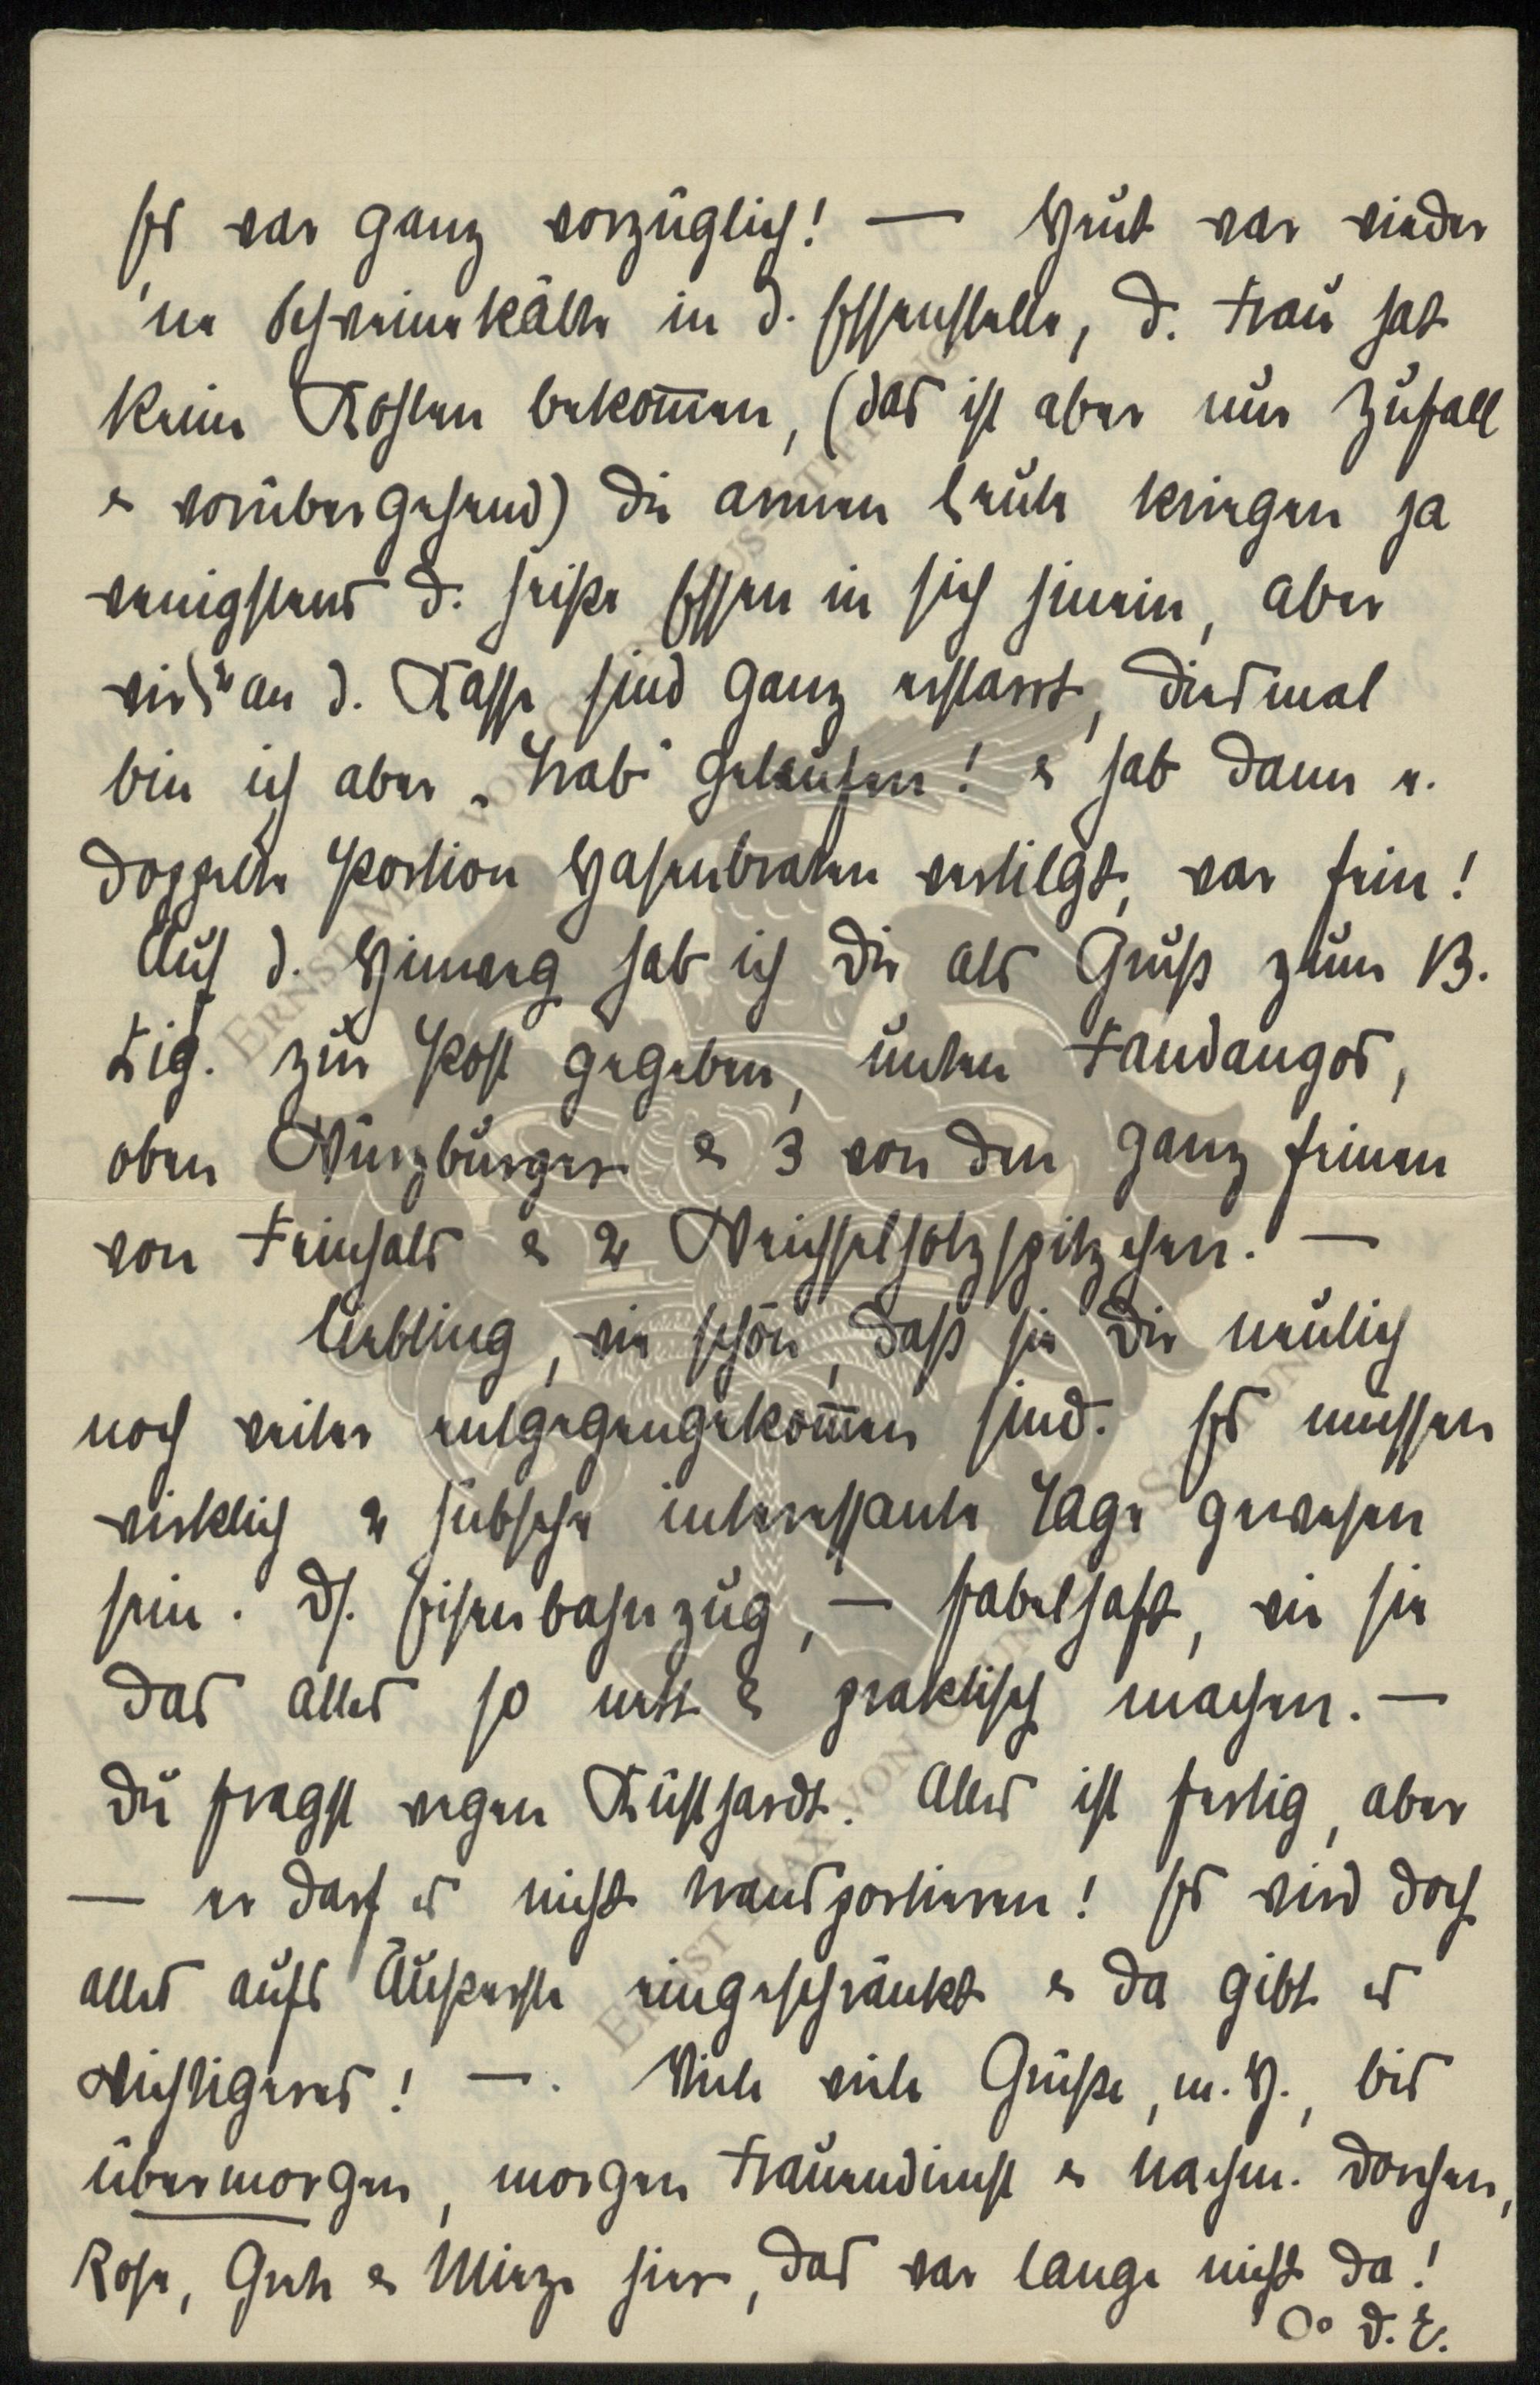 Es war ganz vorzüglich! — Heut war wieder
'ne Schweinekälte in d. Essenstelle, d. Frau hat
keine Kohlen bekom̄en, (das ist aber nur Zufall
& vorübergehend) die armen Leute kriegen ja
wenigstens d. heiße Essen in sich hinein, aber
wir 2 an d. Kasse sind ganz erstarrt, diesmal
bin ich aber „Trab" gelaufen! & hab dann e.
doppelte Portion Hasenbraten vertilgt, war fein!
Auf d. Hinweg hab ich Dir als Gruß zum B.
Zig. zur Post gegeben, unten Fandangos,
oben Würzburger & 3 von den ganz feinen
von Feinhals & 2 Weichselholzspitzchen. —
Liebling, wie schön, daß sie Dir neulich
noch weiter entgegengekom̄en sind. Es müssen
wirklich 2 hübsche interessante Tage gewesen
sein. Ds. Eisenbahnzug, — fabelhaft, wie sie
das alles so nett & praktisch machen. —
Du fragst wegen Küsthardt. Alles ist fertig, aber
— er darf es nicht transportieren! Es wird doch
alles aufs Äußerste eingeschränkt & da gibt es
Wichtigeres! —. Viele viele Grüße, m. H., bis
übermorgen, morgen Frauendienst & nachm. Dorchen,
Rose, Grete & Mieze hier, das war lange nicht da!
Oo D. E.
ERNST MAX VON GRUNELIUS-STIFTUNG
ERNST MAX VON GRUNELIUS-STIFTUNG